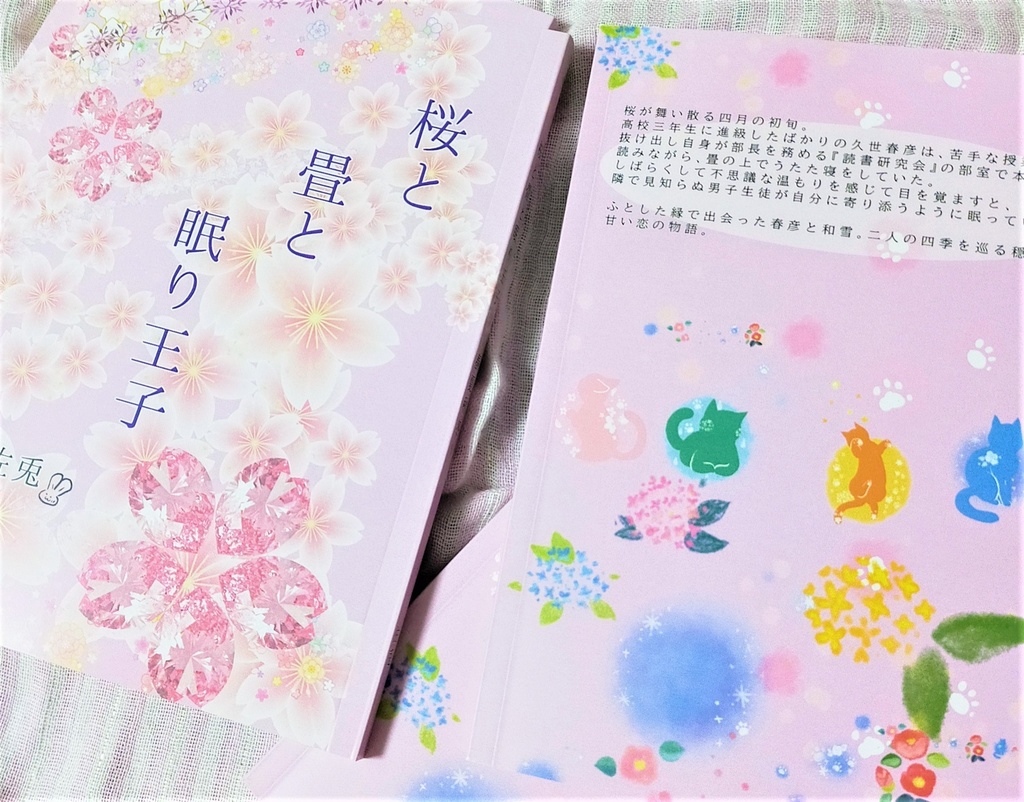 桜と
畳と
眠り王子
兎
桜が舞い散る四月の初旬。
高校三年生に進級したばかりの久世春彦は、苦手な授
抜け出し自身が部長を務める『読書研究会』の部室で本
読みながら、畳の上でうたた寝をしていた。
しばらくして不思議な温もりを感じて目を覚ますと、
隣で見知らぬ男子生徒が自分に寄り添うように眠って
ふとした縁で出会った春彦と和雪。二人の四季を巡る穏
甘い恋の物語。